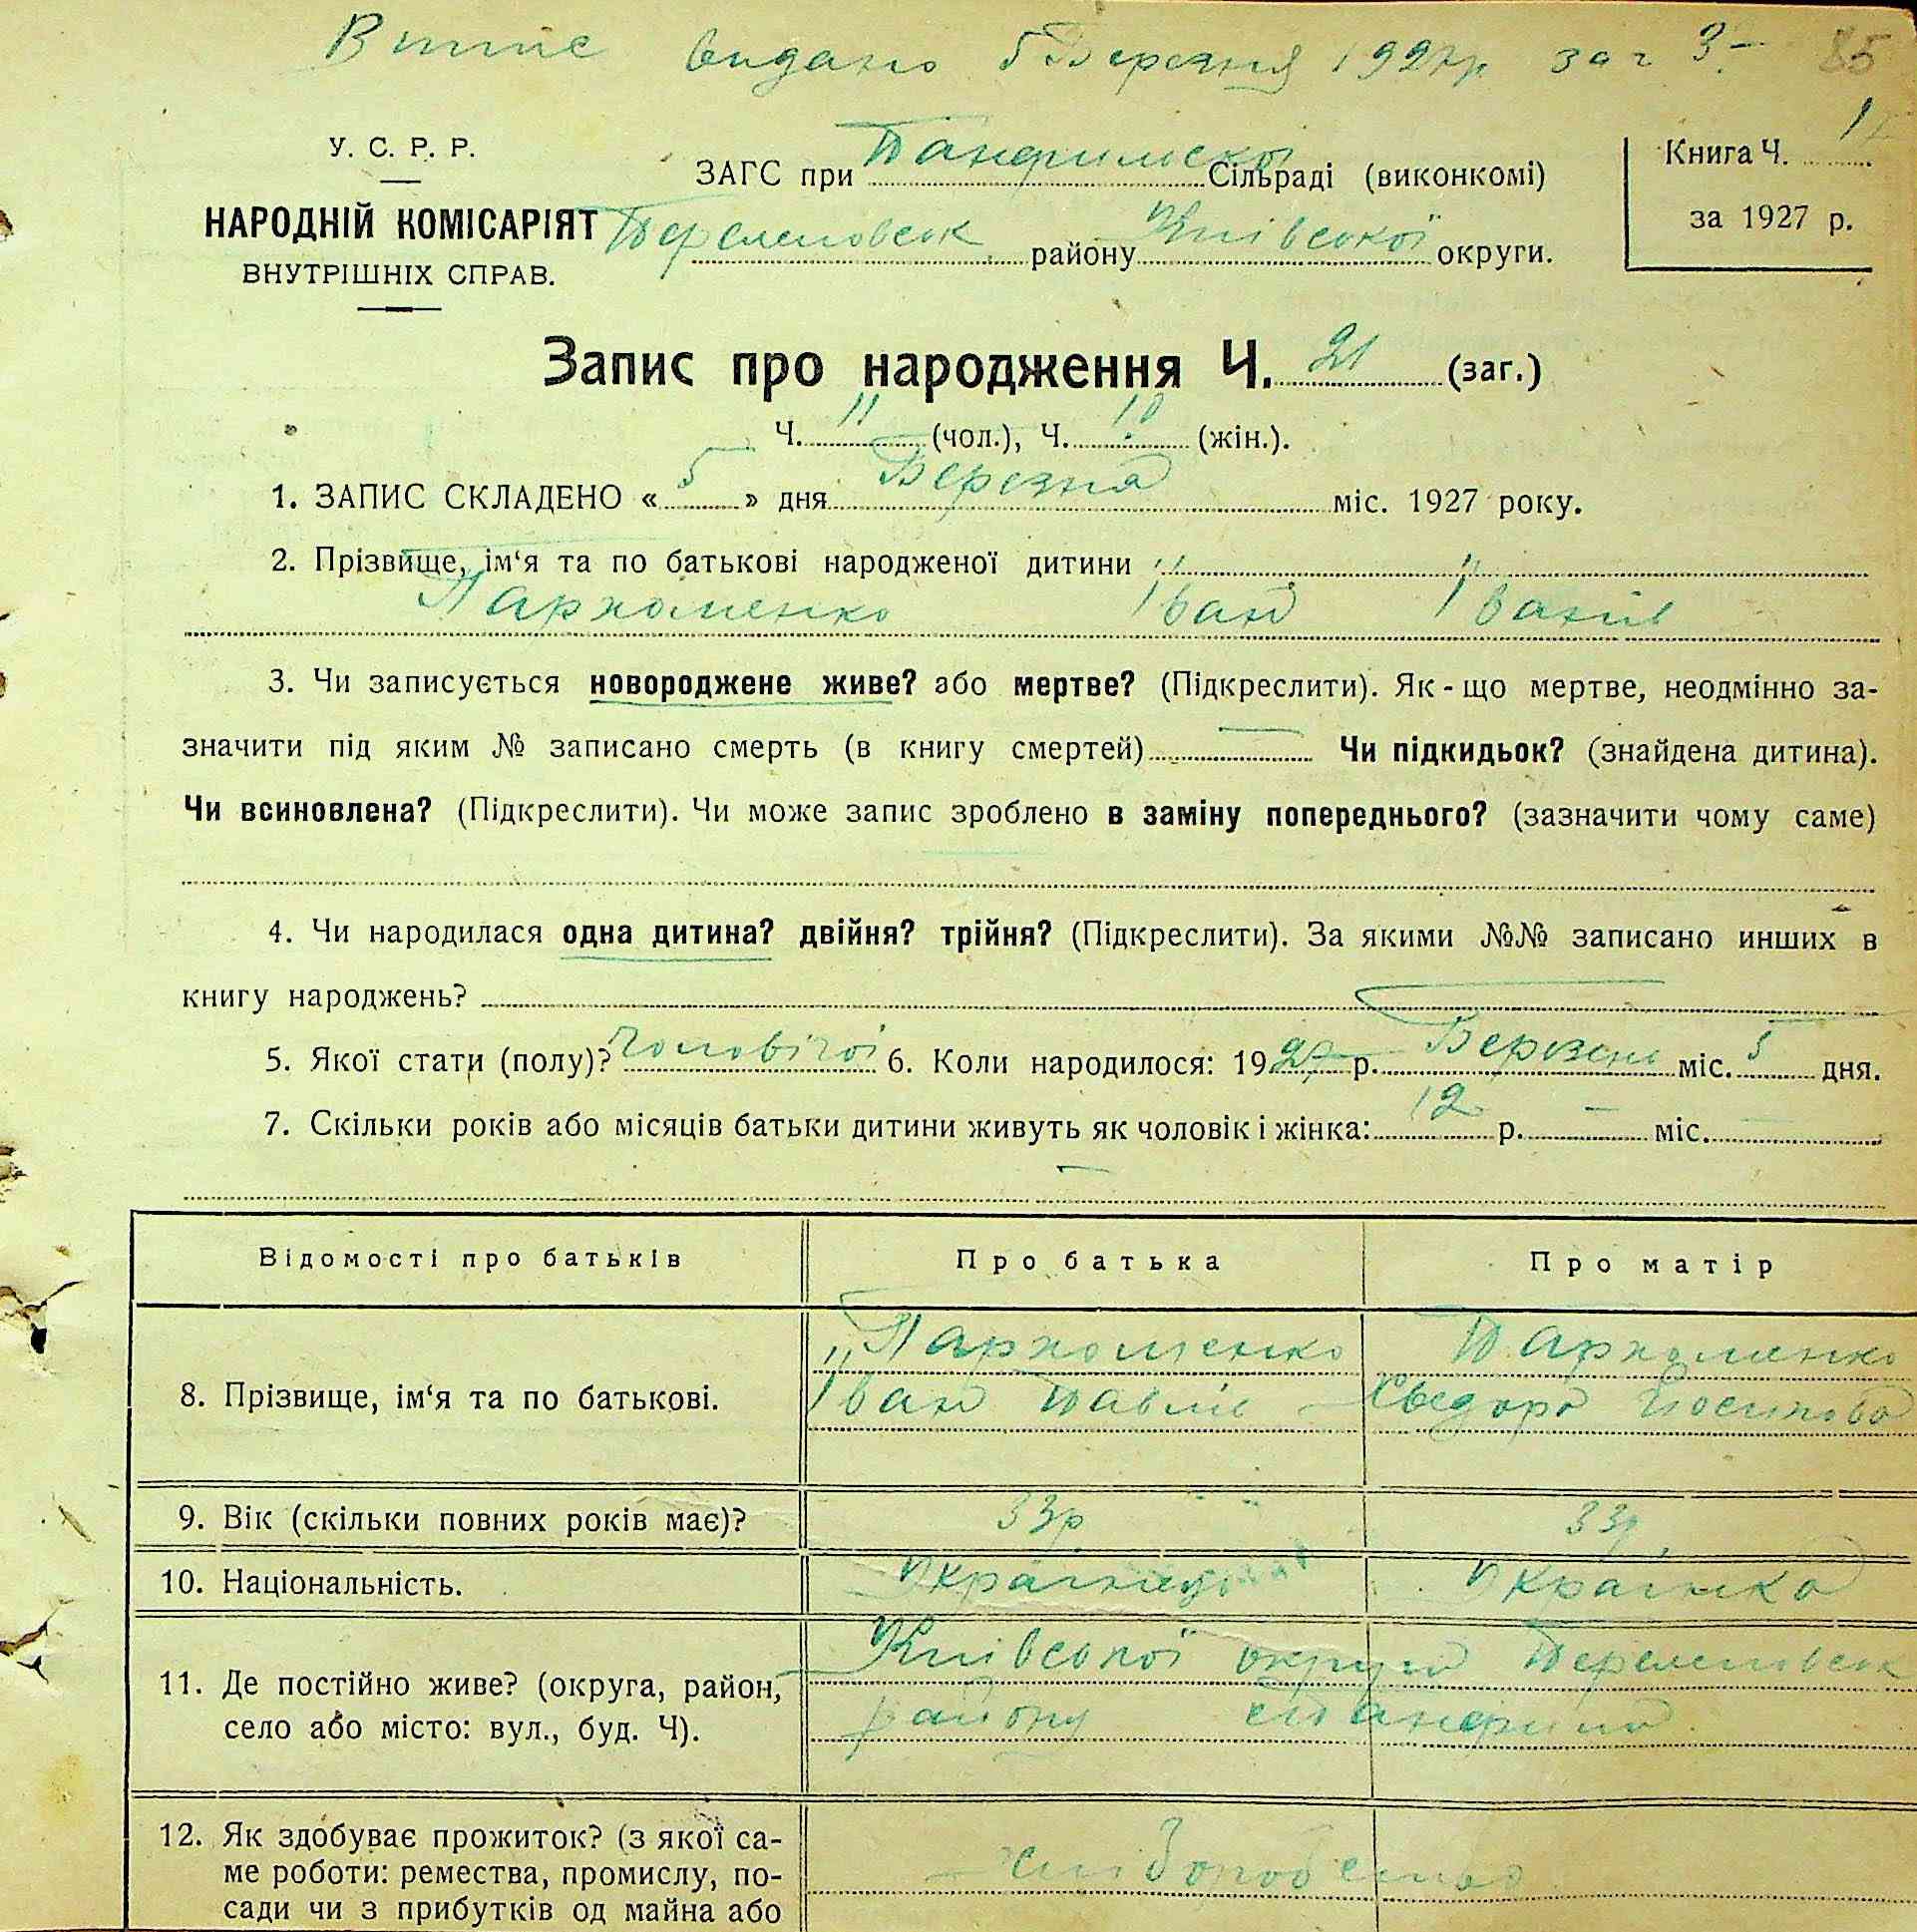 Випис видано 5 Березня 1927р за ч 3.- 85
У. С. Р. Р.
НАРОДНІЙ КОМІСАРІЯТ
ВНУТРІШНІХ СПРАВ.
ЗАГС при Панфильскій Сільраді (виконкомі)
район у Київської округи.
Книга Ч. 1
за 1927 р.
Запис про народження Ч. 21 (заг.)
Ч. 11 (чол.), Ч. 10 (жін.).
1. ЗАПИС СКЛАДЕНО « 5 » дня Березня міс. 1927 року.
2. Прізвище, ім‘я та по батькові народженої дитини
Пархоменко Іван Іванів
3. Чи записується новороджене живе? або мертве? (Підкреслити). Як-що мертве, неодмінно за-
значити під яким № записано смерть (в книгу смертей) — Чи підкидьок? (знайдена дитина).
Чи всиновлена? (Підкреслити). Чи може запис зроблено в заміну попереднього? (зазначити чому саме)
4. Чи народилася одна дитина? двійня? трійня? (Підкреслити). За якими №№ записано инших в
книгу народжень?
5. Якої стати (полу)? Чоловічої 6. Коли народилося: 1927 р. Березень міс. 5 дня.
7. Скільки років або місяців батьки дитини живуть як чоловік і жінка: 12 р. — міс. —
Відомості про батьків Про батька Про матір
8. Прізвище, ім‘я та по батькові. „Пархоменко Іван Павлів Пархоменко Хведора Йосипова
9. Вік (скільки повних років має)? 33р 33р
10. Національність. Українець Українка
11. Де постійно живе? (округа, район,
село або місто: вул., буд. Ч).
Київської округи
району с Панфили
12. Як здобуває прожиток? (з якої са-
ме роботи: ремества, промислу, по-
сади чи з прибутків од майна або